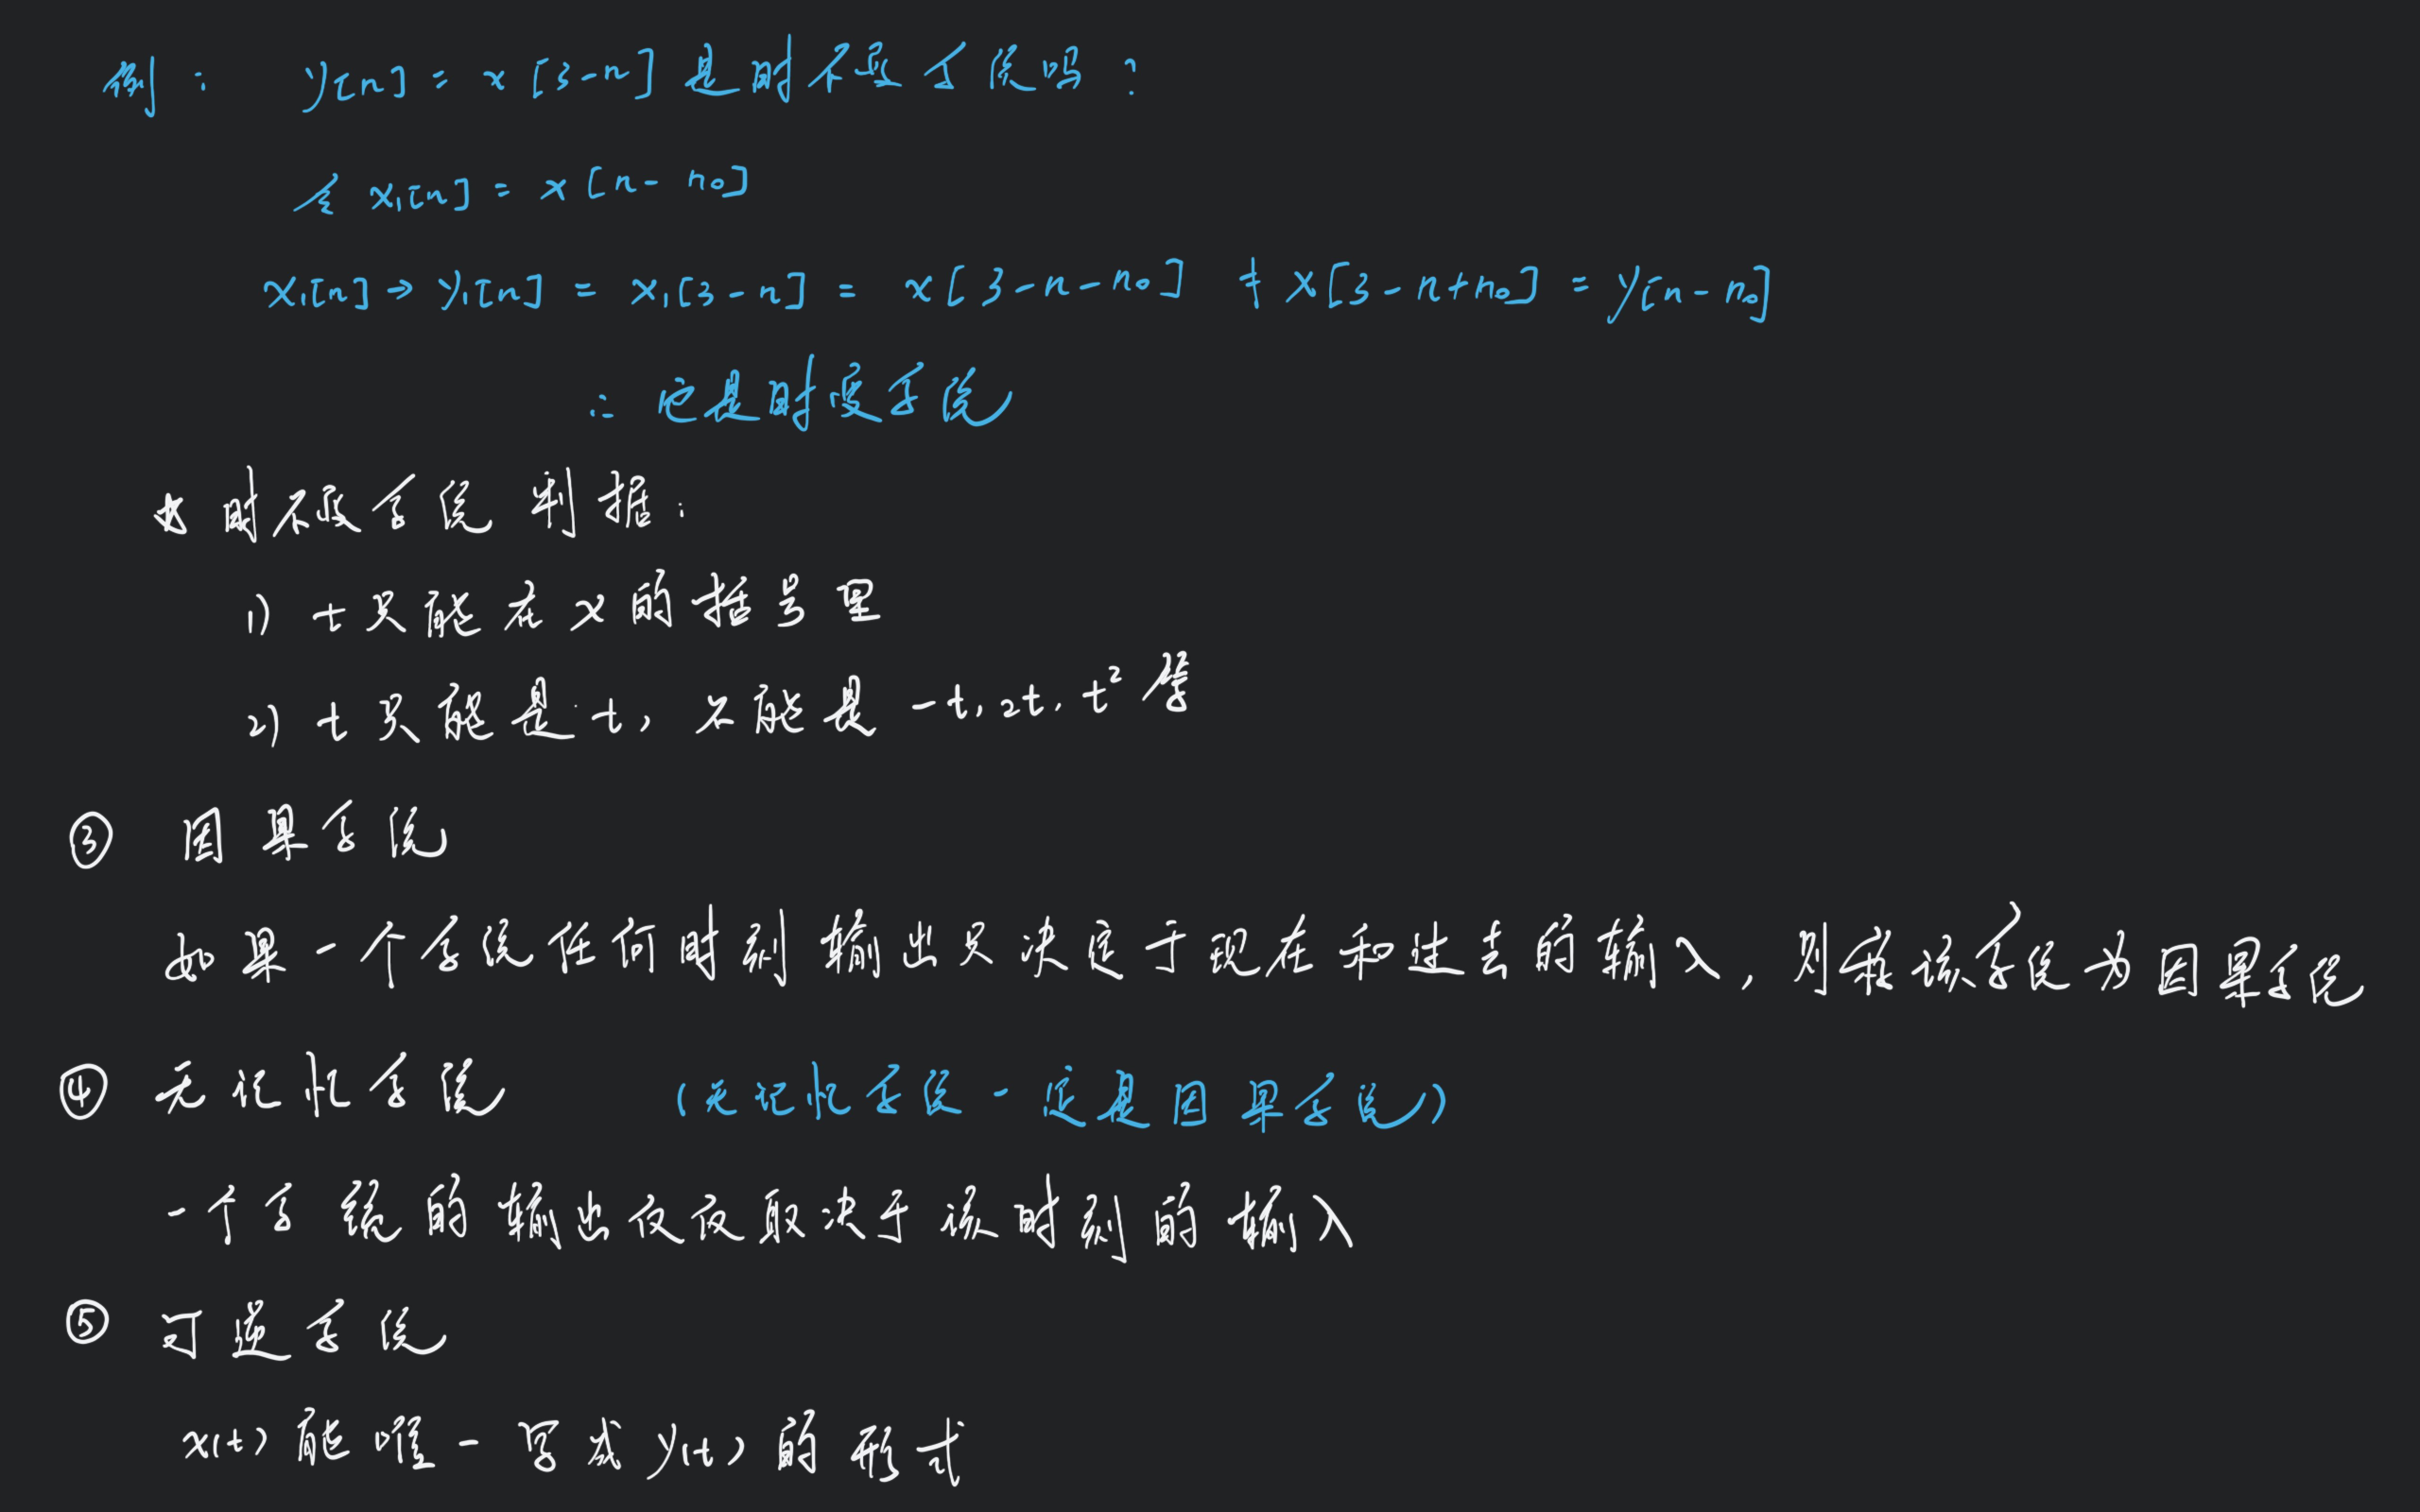 例： y[n] = x[3-n] 是时不变系统吗？
令 x₁[n] = x[n-n₀]
x₁[n] → y₁[n] = x₁[3-n] = x[3-n-n₀] ≠ x[3-n+n₀] = y[n-n₀]
∴ 它是时变系统
☆ 时不变系统 判据：
1) t只能在x的括号里
2) t只能是t, 不能是 -t, 2t, t² 等
③ 因果系统
如果一个系统任何时刻输出只决定于现在和过去的输入, 则称该系统为因果系统
④ 无记忆系统 (无记忆系统一定是因果系统)
一个系统的输出仅仅取决于该时刻的输入
⑤ 可逆系统
x(t) 能唯一写成 y(t) 的形式